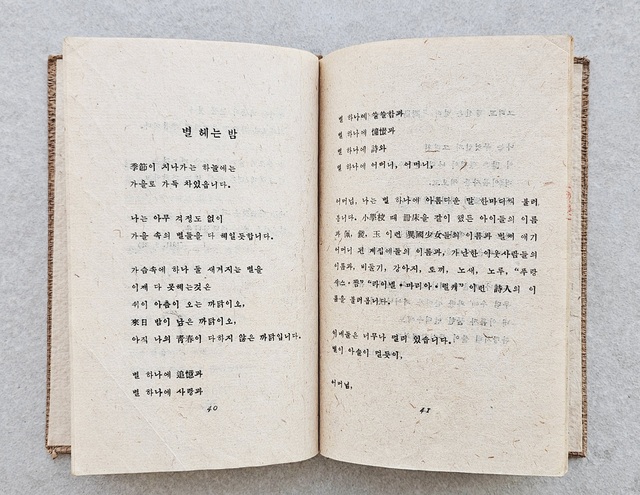 별 헤는 밤
季節이 지나가는 하늘에는
가을로 가득 차있읍니다.
나는 아무 걱정도 없이
가을 속의 별들을 다 헤일듯합니다.
가슴속에 하나 둘 새겨지는 별을
이제 다 못헤는것은
쉬이 아츰이 오는 까닭이오,
來日 밤이 남은 까닭이오,
아직 나의 靑春이 다하지 않은 까닭입니다.
별 하나에 追憶과
별 하나에 사랑과
40
별 하나에 쓸쓸함과
별 하나에 憧憬과
별 하나에 詩와
별 하나에 어머니, 어머니,
어머님, 나는 별 하나에 아름다운 말 한마디씩 불러
봅니다. 小學校 때 冊床을 같이 했든 아이들의 이름
과 佩, 鏡, 玉 이런 異國少女들의 이름과 벌써 애기
어머니 된 계집애들의 이름과, 가난한 이웃사람들의
이름과, 비둘기, 강아지, 토끼, 노새, 노루, “푸랑
시스 · 쨤” “라이넬 · 마리아 · 릴케” 이런 詩人의 이
름을 불러봅니다.
이네들은 너무나 멀리 있습니다.
별이 아슬이 멀듯이,
어머님,
41